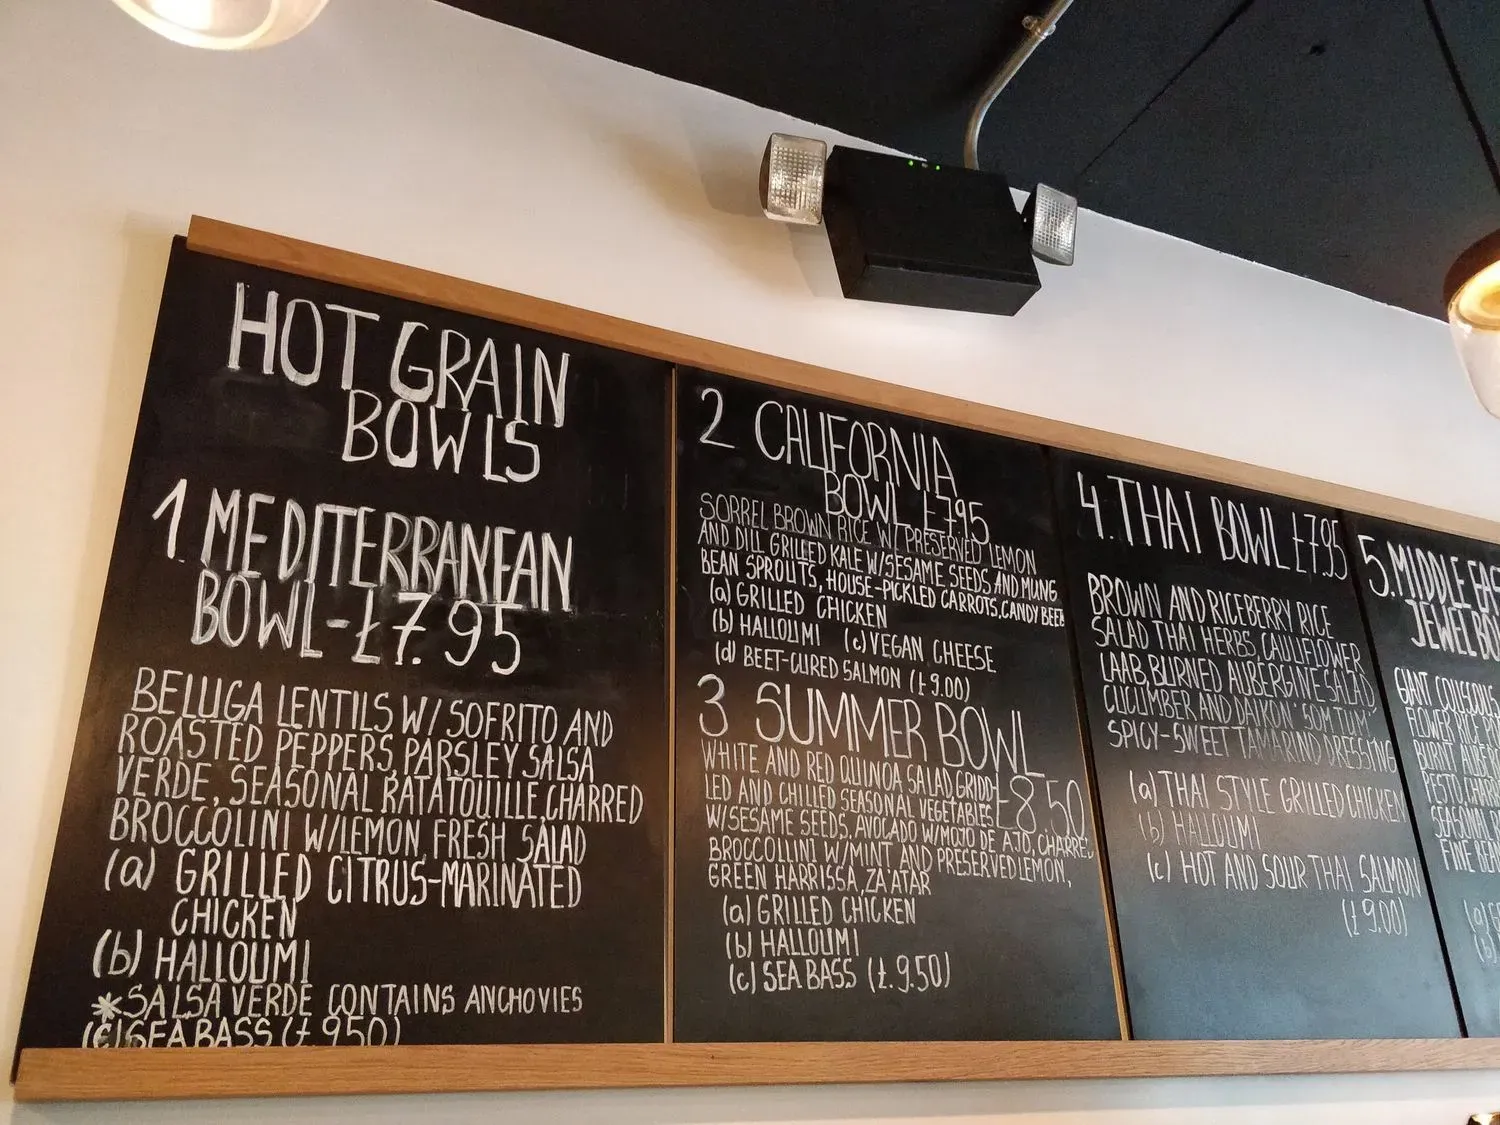 HOT GRAIN
BOWLS
1 MEDITERRANEAN
BOWL-£7.95
BELUGA LENTILS W/ SOFRITO AND
ROASTED PEPPERS, PARSLEY SALSA
VERDE, SEASONAL RATATOUILLE, CHARRED
BROCCOLINI W/LEMON, FRESH SALAD
(a) GRILLED CITRUS-MARINATED
CHICKEN
(b) HALLOUMI
*SALSA VERDE CONTAINS ANCHOVIES
(c) SEA BASS (£ 9.50)
2 CALIFORNIA
BOWL £7.95
SORREL BROWN RICE W/ PRESERVED LEMON
AND DILL GRILLED KALE W/SESAME SEEDS AND MUNG
BEAN SPROUTS, HOUSE-PICKLED CARROTS, CANDY BEET
(a) GRILLED CHICKEN
(b) HALLOUMI (c) VEGAN CHEESE
(d) BEET-CURED SALMON (£9.00)
3 SUMMER BOWL
£8.50
WHITE AND RED QUINOA SALAD, GRIDD-
LED AND CHILLED SEASONAL VEGETABLES
W/SESAME SEEDS, AVOCADO W/MOJO DE AJO, CHARRED
BROCCOLLINI W/MINT AND PRESERVED LEMON,
GREEN HARRISSA, ZA'ATAR
(a) GRILLED CHICKEN
(b) HALLOUMI
(c) SEA BASS (£.9.50)
4. THAI BOWL £7.95
BROWN AND RICEBERRY RICE
SALAD THAI HERBS, CAULIFLOWER
LAAB, BURNED AUBERGINE SALAD,
CUCUMBER AND DAIKON "SOM TUM",
SPICY-SWEET TAMARIND DRESSING
(a) THAI STYLE GRILLED CHICKEN
(b) HALLOUMI
(c) HOT AND SOUR THAI SALMON
(£ 9.00)
5. MIDDLE EAS
JEWEL BO
GIANT COUSCOUS,
FLOWER
BURNT
PESTO, CHARR
SEASONAL
FINE BEA
(a) G
(b)